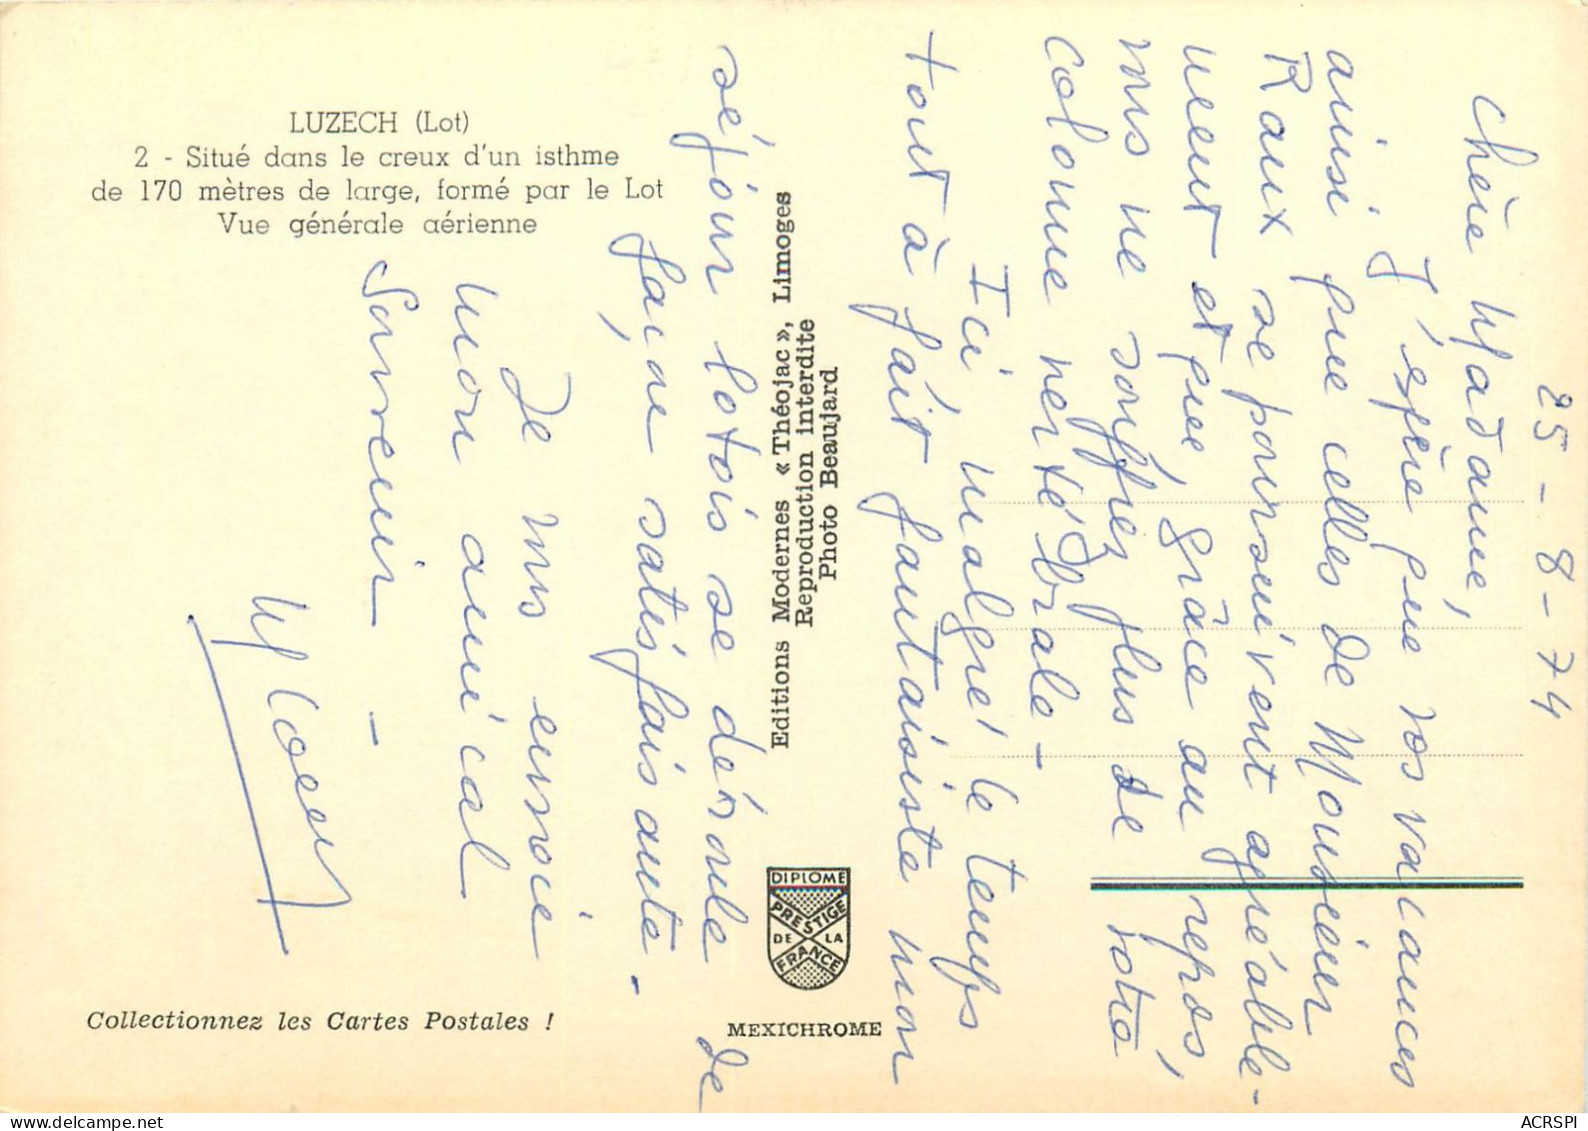 LUZECH (Lot)
2 - Situé dans le creux d'un isthme
de 170 mètres de large, formé par le Lot
Vue générale aérienne
Editions Modernes « Théojac », Limoges
Reproduction interdite
Photo Beaujard
DIPLOME
PRESTIGE
DE LA
FRANCE
MEXICHROME
Collectionnez les Cartes Postales !
25-8-74
Chère Madame,
J'espère que vos vacances
ainsi que celles de Monsieur
Raux se poursuivent agréable-
ment et que, grâce au repos,
vous ne souffrez plus de votre
colonne vertébrale-
Ici, malgré le temps
tout à fait fantaisiste mon
séjour lotois se déroule de
façon satisfaisante.
Je vous envoie
mon amical
Souvenir -
ACRSPI